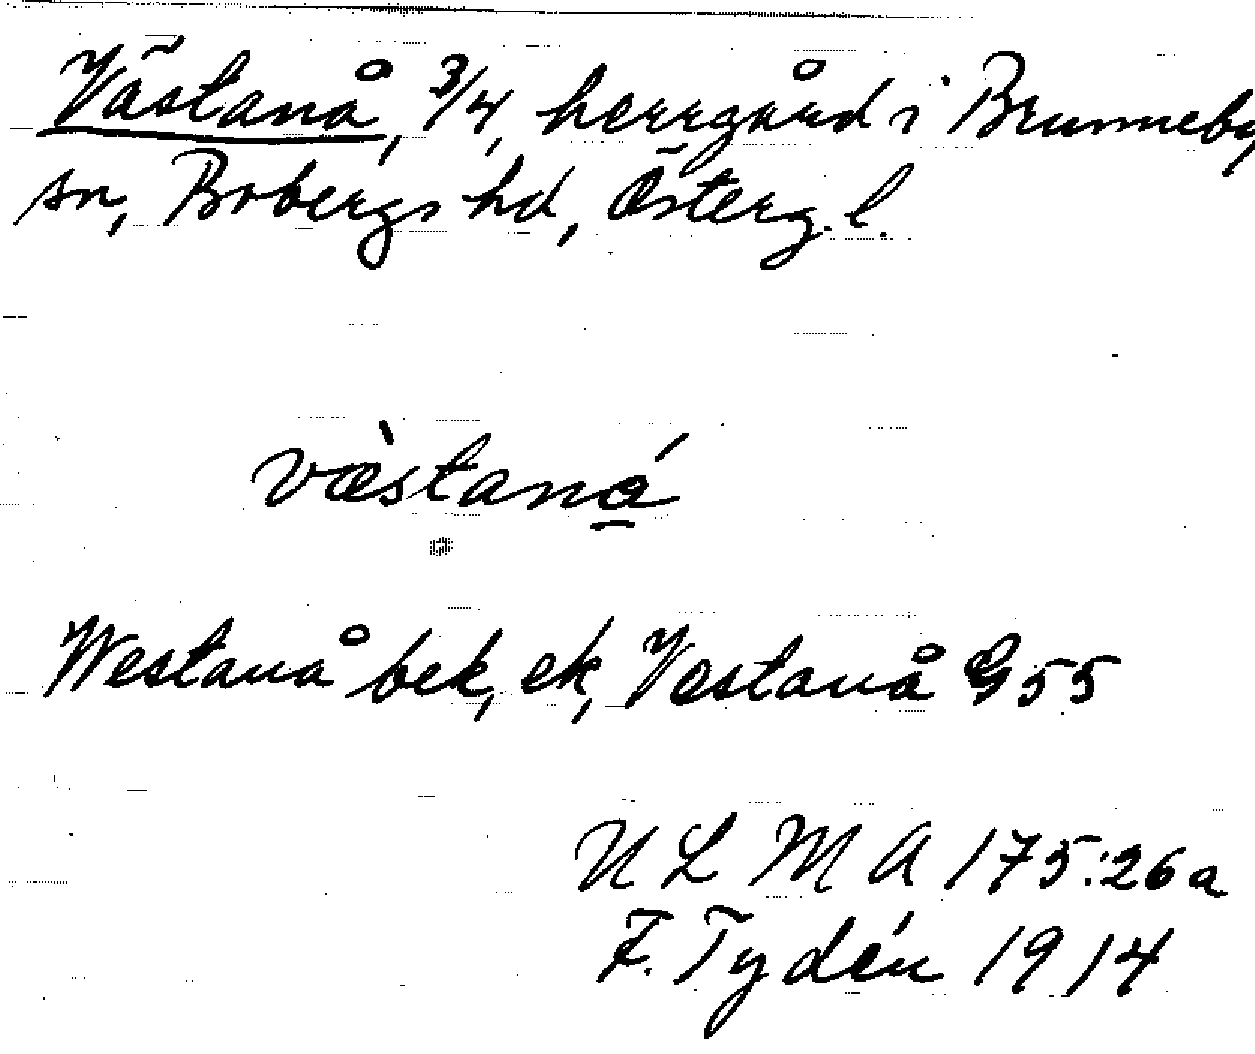 Västanå, 3/4, herrgård i Brunneby
sn, Bobergs hd, Österg. l.
væ̀staná̱
Westanå bek, ek, Vestanå G 55
ULMA 175:26a
F. Tydén 1914